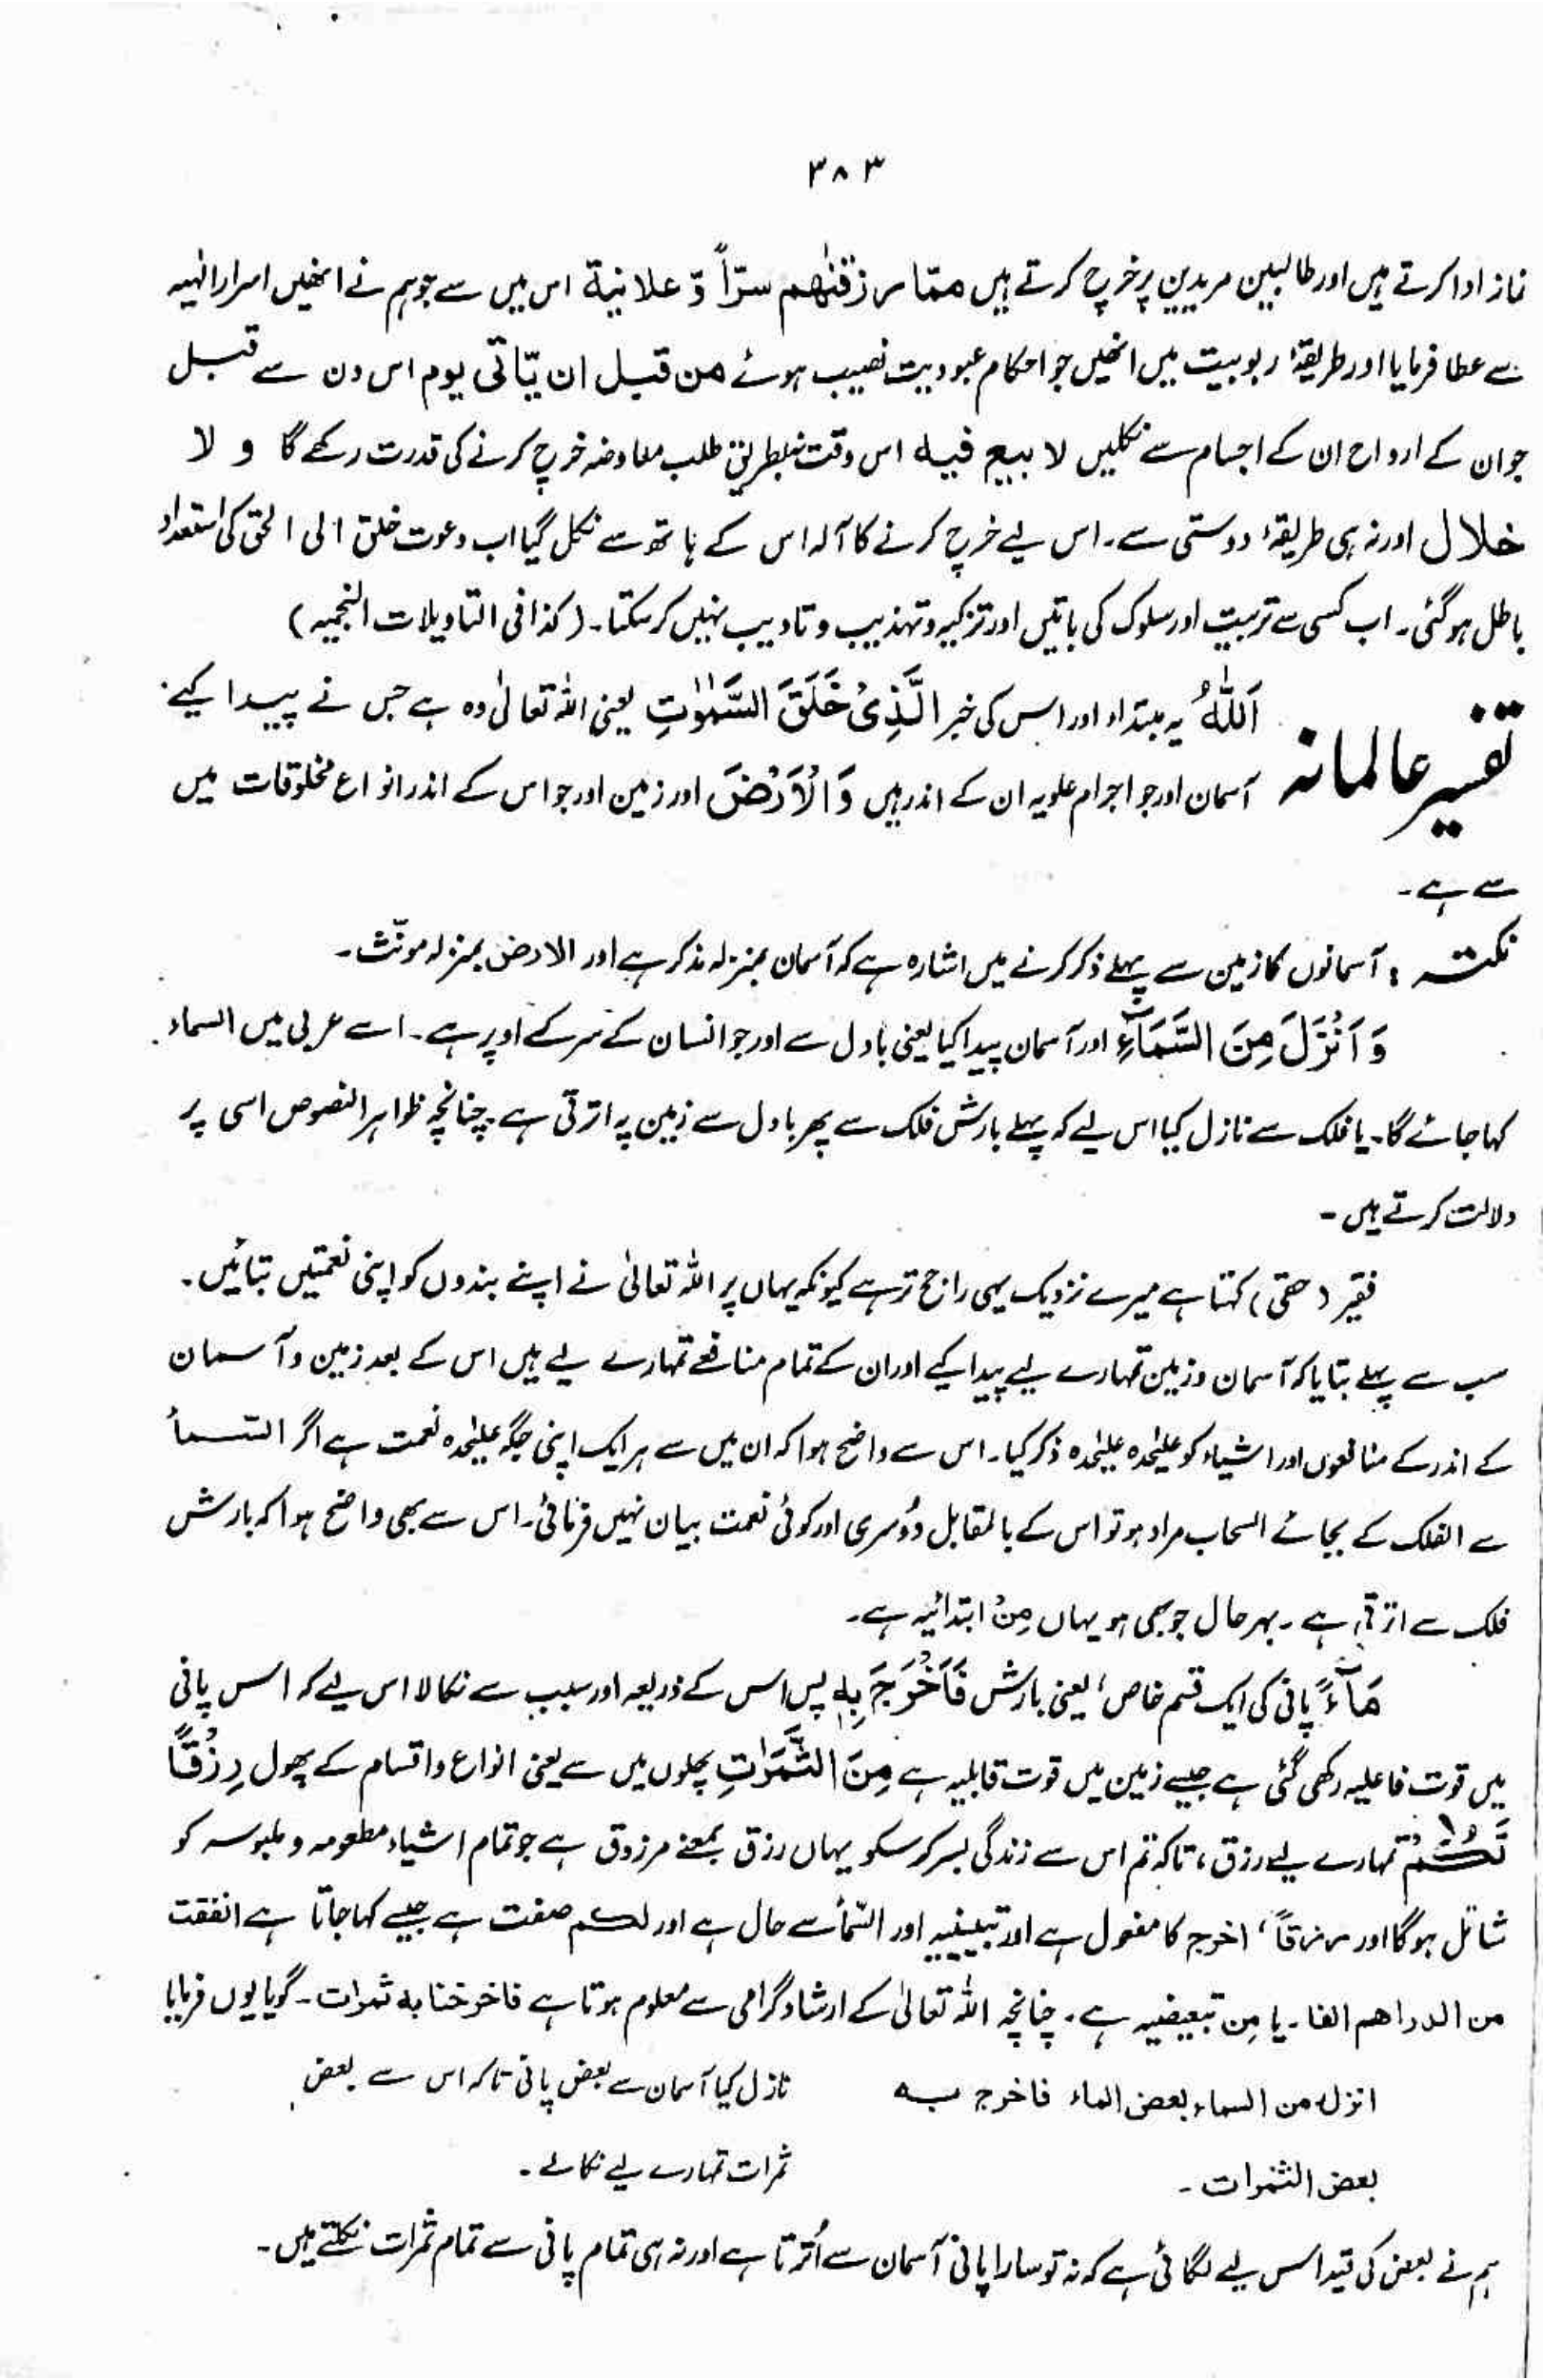 ۳۸۳
نماز ادا کرتے ہیں اور طالبین مریدین پر خرچ کرتے ہیں ممّا رزقنٰھم سرّاً وّ علانیة اس میں سے جو ہم نے انھیں اسرار الٰہیہ
سے عطا فرمایا اور طریقۂ ربوبیت میں انھیں جو احکام عبودیت نصیب ہوئے من قبل ان یّاتی یوم اس دن سے قبل
جو ان کے ارواح ان کے اجسام سے نکلیں لا بیع فیه اس وقت نہ بطریق طلب معاوضہ خرچ کرنے کی قدرت رکھے گا و لا
خلال اور نہ ہی طریقۂ دوستی سے۔ اس لیے خرچ کرنے کا آلہ اس کے ہاتھ سے نکل گیا اب دعوت خلق الی الحق کی استعداد
باطل ہو گئی۔ اب کسی سے تربیت اور سلوک کی باتیں اور تزکیہ و تہذیب و تادیب نہیں کر سکتا۔ (کذا فی التاویلات النجمیہ)
تفسیر عالمانہ
اَللّٰهُ یہ مبتداء اور اس کی خبر الَّذِیْ خَلَقَ السَّمٰوٰتِ یعنی اللہ تعالیٰ وہ ہے جس نے پیدا کیے
آسمان اور جو اجرام علویہ ان کے اندر ہیں وَ الْاَرْضَ اور زمین اور جو اس کے اندر انواع مخلوقات میں
سے ہے۔
نکتہ : آسمانوں کا زمین سے پہلے ذکر کرنے میں اشارہ ہے کہ آسمان بمنزلہ مذکر ہے اور الارض بمنزلہ مونّث۔
وَ اَنْزَلَ مِنَ السَّمَآءِ اور آسمان پیدا کیا یعنی بادل سے اور جو انسان کے سر کے اوپر ہے۔ اسے عربی میں السماء
کہا جائے گا۔ یا فلک سے نازل کیا اس لیے کہ پہلے بارش فلک سے پھر بادل سے زمین پہ اترتی ہے۔ چنانچہ ظواہر النصوص اسی پر
دلالت کرتے ہیں۔
فقیر (حقی) کہتا ہے میرے نزدیک یہی راجح تر ہے کیونکہ یہاں پر اللہ تعالیٰ نے اپنے بندوں کو اپنی نعمتیں بتائیں۔
سب سے پہلے بتایا کہ آسمان و زمین تمہارے لیے پیدا کیے اور ان کے تمام منافعے تمہارے لیے ہیں اس کے بعد زمین و آسمان
کے اندر کے منافعوں اور اشیاء کو علیٰحدہ علیٰحدہ ذکر کیا۔ اس سے واضح ہوا کہ ان میں سے ہر ایک اپنی جگہ علیٰحدہ نعمت ہے اگر السمأ
سے الفلک کے بجائے السحاب مراد ہو تو اس کے بالمقابل دُوسری اور کوئی نعمت بیان نہیں فرمائی۔ اس سے بھی واضح ہوا کہ بارش
فلک سے اترتی ہے۔ بہرحال جو بھی ہو یہاں مِنْ ابتدائیہ ہے۔
مَآءً پانی کی ایک قسم خاص، یعنی بارش فَاَخْرَجَ بِهٖ پس اس کے ذریعہ اور سبب سے نکالا اس لیے کہ اس پانی
میں قوت فاعلیہ رکھی گئی ہے جیسے زمین میں قوت قابلیہ ہے مِنَ الثَّمَرٰتِ پھلوں میں سے یعنی انواع و اقسام کے پھول رِزْقًا
لَّکُمْ تمہارے لیے رزق، تاکہ تم اس سے زندگی بسر کر سکو یہاں رزق بمعنے مرزوق ہے جو تمام اشیاء مطعومہ و ملبوسہ کو
شامل ہوگا اور رزقاً، اخرج کا مفعول ہے اور تبیینیہ اور السّمأ سے حال ہے اور لکم صفت ہے جیسے کہا جاتا ہے انفقت
من الدراھم الفا۔ یا مِن تبعیضیہ ہے۔ چنانچہ اللہ تعالیٰ کے ارشاد گرامی سے معلوم ہوتا ہے فاخرجنا به ثمرات۔ گویا یوں فرمایا
انزل من السماء بعض الماء فاخرج به
بعض الثمرات۔
نازل کیا آسمان سے بعض پانی تاکہ اس سے بعض
ثمرات تمہارے لیے نکالے۔
ہم نے بعض کی قید اس لیے لگائی ہے کہ نہ تو سارا پانی آسمان سے اُترتا ہے اور نہ ہی تمام پانی سے تمام ثمرات نکلتے ہیں۔